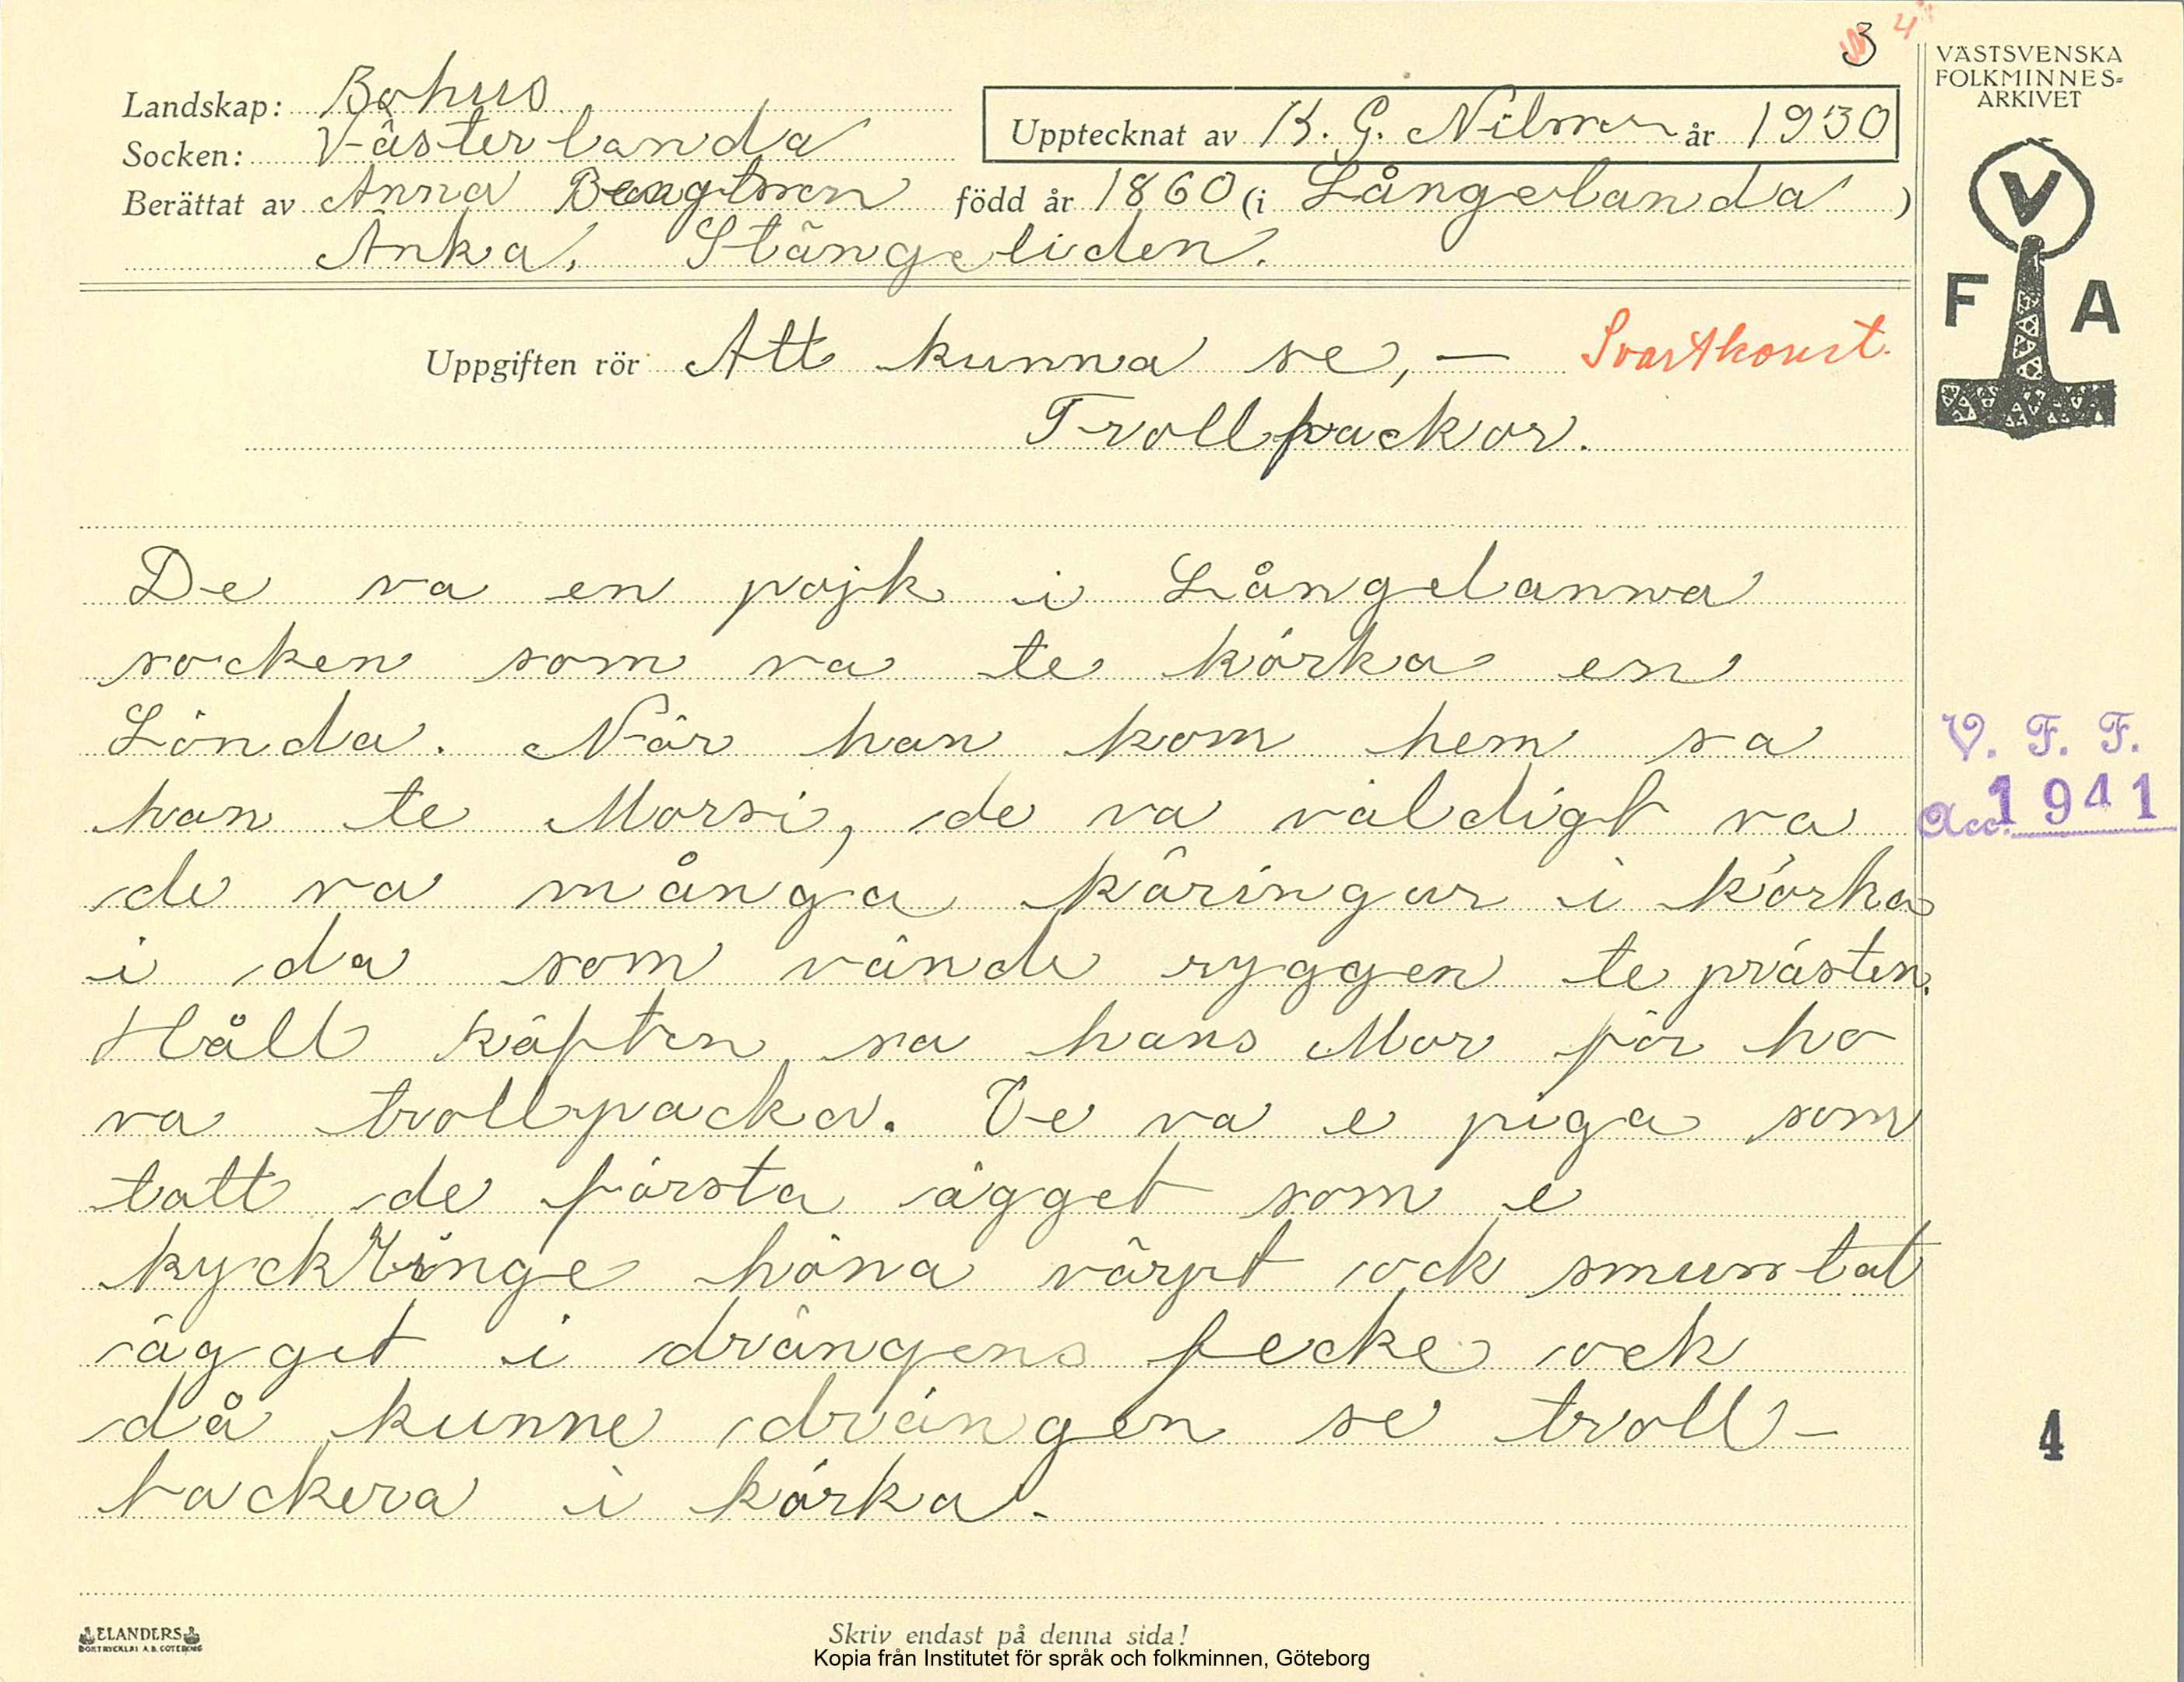 3 4
VÄSTSVENSKA
FOLKMINNES-
ARKIVET
Landskap: Bohus
Socken: Västerlanda
Upptecknat av K. G. Nilsson år 1930
Berättat av Anna Bengtson född år 1860 (i Långelanda)
Änka, Stängeliden.
V
F A
Uppgiften rör Att kunna se, — Svartkonst.
Trollpackor.
De va en pojk i Långelanna
socken som va te körka en
Sönda. När han kom hem sa
han te Morsi, de va väldigt va
de va många käringar i körka
i da som vände ryggen te prästen.
Håll käften sa hans Mor för ho
va trollpacka. De va e piga som
tatt de första ägget som e
kycklinge höna värpt ock smusslat
ägget i drängens fecke ock
då kunne drängen se troll-
packera i körka.
V. F. F.
Acc. 1941
4
ELANDERS
BOKTRYCKERI A.B. GÖTEBORG
Skriv endast på denna sida!
Kopia från Institutet för språk och folkminnen, Göteborg